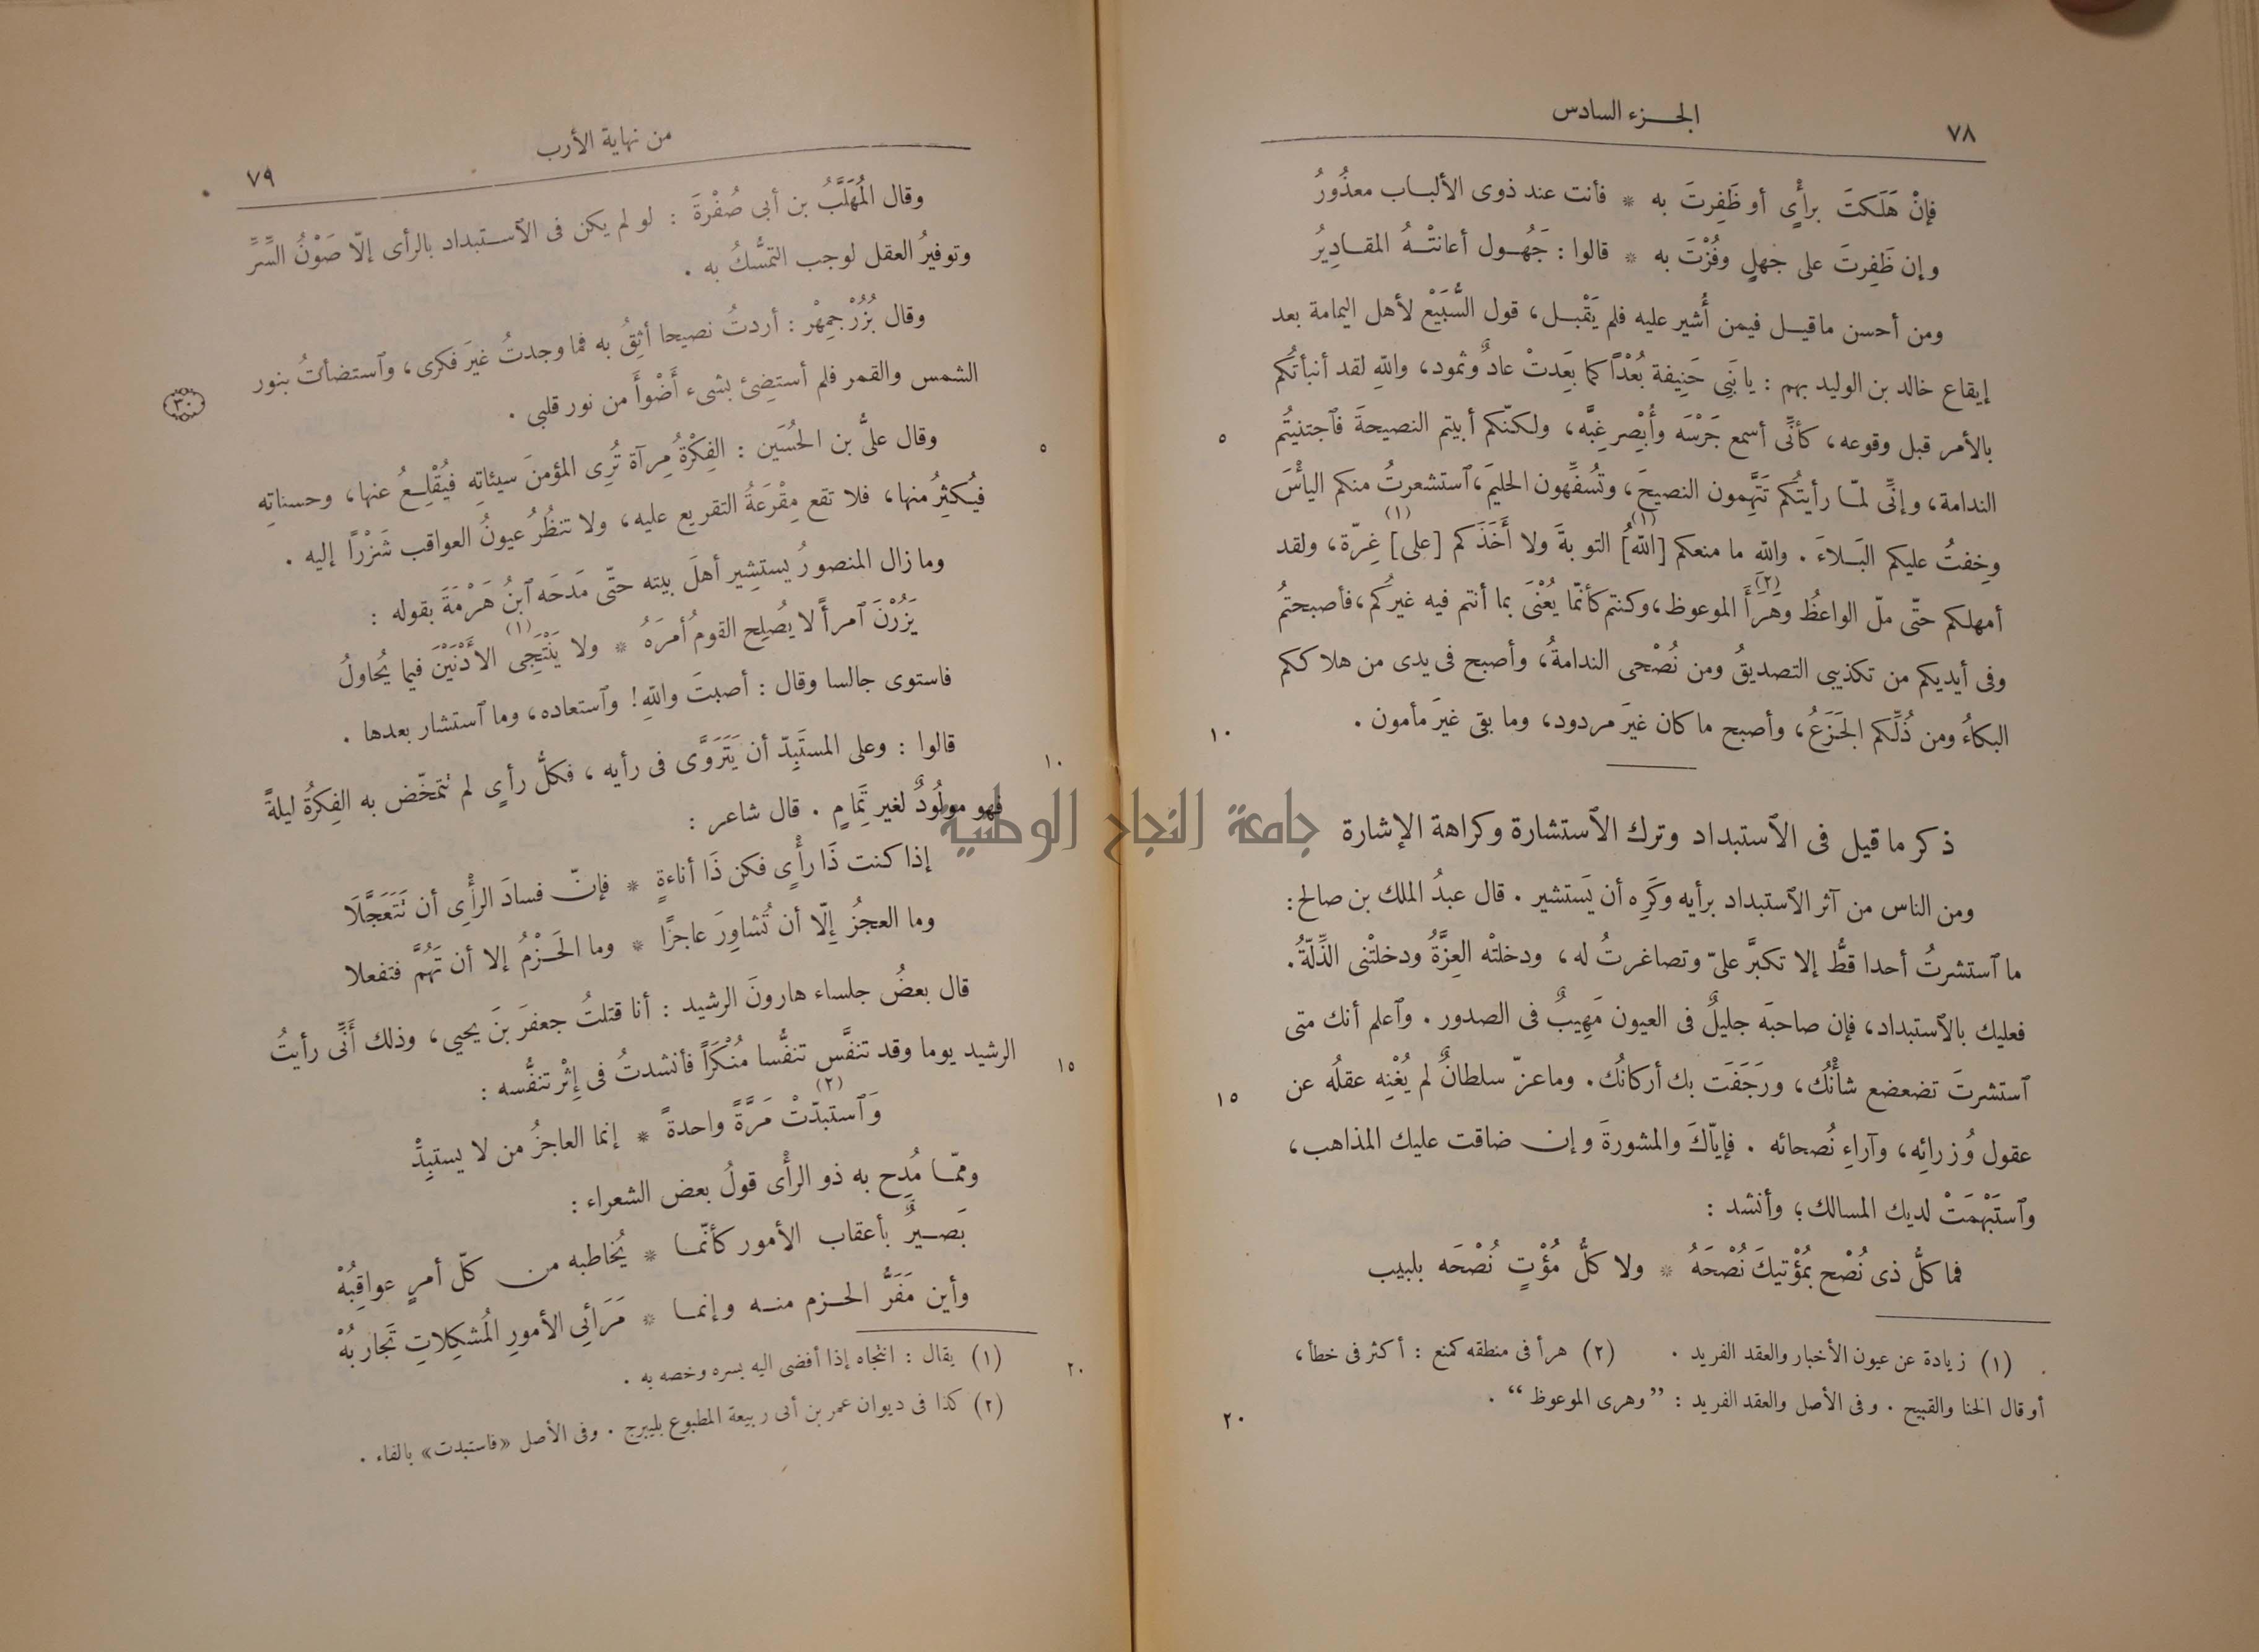 ٧٨
الجـزء السادس
فإنْ هَلَكتَ برأْيٍ أو ظَفِرتَ به * فأنت عند ذوى الألبـاب معذُورُ
وإن ظَفِرتَ على جَهلٍ وفُزْتَ به * قالوا : جَهُـول أعانتْـهُ المقـادِيرُ
ومن أحسن ماقيـل فيمن أُشير عليه فلم يَقْبـل، قول السُّبَيْع لأهل اليمامة بعد
إيقاع خالد بن الوليد بهم : يا بَنِى حَنِيفة بُعْدًا كما بَعِدتْ عادٌ وثمود، واللهِ لقد أنبأتُكم
بالأمر قبل وقوعه، كأنِّى أسمع جَرْسَه وأُبْصِر غِبَّه، ولكنّكم أبيتم النصيحةَ فٱجتنيتُم
٥
الندامة، وإنِّى لمّا رأيتُكم تَتَّهِمون النصيحَ، وتُسفِّهون الحليمَ، ٱستشعرتُ منكم اليأسَ
وخِفتُ عليكم البَـلاءَ . والله ما منعكم [اللهُ](١) التوبةَ ولا أَخَذَكم [على](١) غِرّة، ولقد
أمهلكم حتّى ملّ الواعظُ وهَرَأَ(٢) الموعوظ، وكنتم كأنّما يُعْنَى بما أنتم فيه غيرُكم، فأصبحتمُ
وفى أيديكم من تكذيبى التصديقُ ومن نُصْحى الندامةُ، وأصبح فى يدى من هلاككم
البكاءُ ومن ذُلِّكم الجَزَعُ، وأصبح ما كان غيرَ مردود، وما بقى غيرَ مأمون .
١٠
ذكر ما قيل فى الٱستبداد وترك الٱستشارة وكراهة الإشارة
ومن الناس من آثر الٱستبداد برأيه وكَرِه أن يَستشير . قال عبدُ الملك بن صالح :
ما ٱستشرتُ أحدا قطُّ إلا تكبَّر علىّ وتصاغرتُ له، ودخلتْه العِزَّةُ ودخلتْنى الذِّلّةُ .
فعليك بالٱستبداد، فإن صاحبَه جليلٌ فى العيون مَهِيبٌ فى الصدور . وٱعلم أنك متى
ٱستشرتَ تضعضع شأنُك، ورَجَفَت بك أركانُك . وما عزّ سلطانٌ لم يُغْنِه عقلُه عن
١٥
عقول وُزرائِه، وآراءِ نُصحائه . فإيّاكَ والمشورةَ وإن ضاقت عليك المذاهب،
وٱستَبْهَمَتْ لديك المسالك؛ وأنشد :
فما كلُّ ذى نُصْح بمُؤْتيكَ نُصْحَهُ * ولا كلُّ مُؤْتٍ نُصْحَه بلبيب
(١) زيادة عن عيون الأخبار والعقد الفريد . (٢) هرأ فى منطقه كمنع : أكثر فى خطأ،
أو قال الخنا والقبيح . وفى الأصل والعقد الفريد : ”وهرى الموعوظ“ .
٢٠
من نهاية الأرب
٧٩
وقال المُهَلَّبُ بن أبى صُفْرةَ : لو لم يكن فى الٱستبداد بالرأى إلّا صَوْنُ السِّرِّ
وتوفيرُ العقل لوجب التمسُّكُ به .
وقال بُزُرْجمِهْر : أردتُ نصيحا أثِقُ به فما وجدتُ غيرَ فكرى، وٱستضأتُ بنور
الشمس والقمر فلم أستضِئ بشىء أَضْوأَ من نور قلبى .
٣٠
وقال علىُّ بن الحُسَين : الفِكْرةُ مِرآة تُرِى المؤمنَ سيئاتِه فيُقْلِـعُ عنها، وحسناتِه
٥
فيُكثِرُ منها، فلا تقع مِقْرَعَةُ التقريع عليه، ولا تنظُرُ عيونُ العواقب شَزْرًا إليه .
وما زال المنصورُ يستشِير أهلَ بيته حتّى مَدَحَه ٱبنُ هَرْمَةَ بقوله :
يَزُرْنَ ٱمرأً لا يُصلِح القومُ أمرَهُ * ولا يَنْتَجِى(١) الأَدْنَيْنَ فيما يُحاولُ
فاستوى جالسا وقال : أصبتَ واللهِ! وٱستعاده، وما ٱستشار بعدها .
قالوا : وعلى المستَبِدّ أن يَتَرَوَّى فى رأيه ، فكلُّ رأىٍ لم تتمخّض به الفِكرةُ ليلةً
١٠
فهو مولُودٌ لغير تِمَامٍ . قال شاعر :
إذا كنت ذَا رأْىٍ فكن ذَا أناءةٍ * فإنّ فسادَ الرأْىِ أن تَتَعَجَّلَا
وما العجزُ إلّا أن تُشاوِرَ عاجزًا * وما الحَـزْمُ إلا أن تَهُمَّ فتفعلا
قال بعضُ جلساء هارونَ الرشيد : أنا قتلتُ جعفرَ بنَ يحيى، وذلك أَنِّى رأيتُ
الرشيد يوما وقد تنفَّس تنفُّسا مُنْكَرًا فأنشدتُ فى إِثْر تنفُّسه :
١٥
وَٱستبدّتْ(٢) مَرَّةً واحدةً * إنما العاجزُ من لا يستبِدّْ
وممّـا مُدِح به ذو الرأْى قولُ بعض الشعراء :
بَصـيرٌ بأعقاب الأمور كأنّمـا * يُخاطبه من كلّ أمرٍ عواقِبُهْ
وأين مَفَرُّ الحـزم منـه وإنمـا * مَرَائِى الأمورِ المُشكِلاتِ تَجَاربُهْ
(١) يقال : انتجاه إذا أفضى اليه بسره وخصه به .
٢٠
(٢) كذا فى ديوان عمر بن أبى ربيعة المطبوع بليبرج . وفى الأصل «فاستبدت» بالفاء .
جامعة النجاح الوطنية